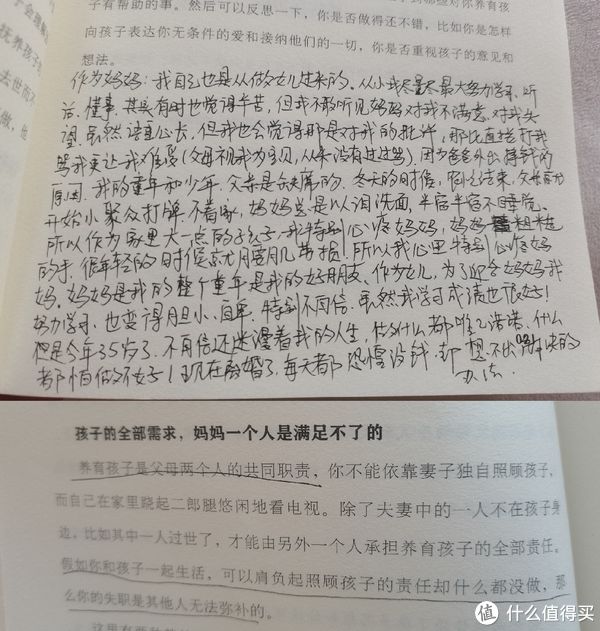 子有帮助的事。然后可以反思一下，你是否做得还不错，比如你是怎样
向孩子表达你无条件的爱和接纳他们的一切，你是否重视孩子的意见和
想法。
抚养孩子
去世而不
做，他
作为妈妈：我自己也是从做女儿过来的。从小我尽量尽最大努力学习、听
话、懂事、其实有时也觉得辛苦，但我不敢听见妈妈对我不满意、对我失
望。虽然语重心长，但我也会觉得那是对我的批评，那比直接打我
骂我更让我难受（父母视我为宝贝，从来没有过过）。因为爸爸外出挣钱的
原因，我的童年和少年，父亲是缺席的。冬天的时候，结束，父亲
开始小聚众打牌不着家，妈妈总是以泪洗面，半宿半宿不睡觉。
所以作为家里大一点的孩子，我特别心疼妈妈，妈妈粗糙
的手，很年轻的时候就腰肌劳损，所以我心里特别心疼妈
妈。妈妈是我的整个童年是我的好朋友、作为女儿，为了迎合妈妈我
努力学习，也变得胆小、自卑，特别不自信。虽然我学习成绩也很好！
但是今年35岁了。不自信还迷漫着我的人生，做什么都唯唯诺诺、什么
都怕做不好！现在离婚了，每天都恐慌没钱，却想不出解决的
办法。
孩子的全部需求，妈妈一个人是满足不了的
养育孩子是父母两个人的共同职责，你不能依靠妻子独自照顾孩子，
而自己在家里跷起二郎腿悠闲地看电视。除了夫妻中的一人不在孩子身
边，比如其中一人过世了，才能由另外一个人承担养育孩子的全部责任。
假如你和孩子一起生活，可以肩负起照顾孩子的责任却什么都没做，那
么你的失职是其他人无法弥补的。
值 什么值得买